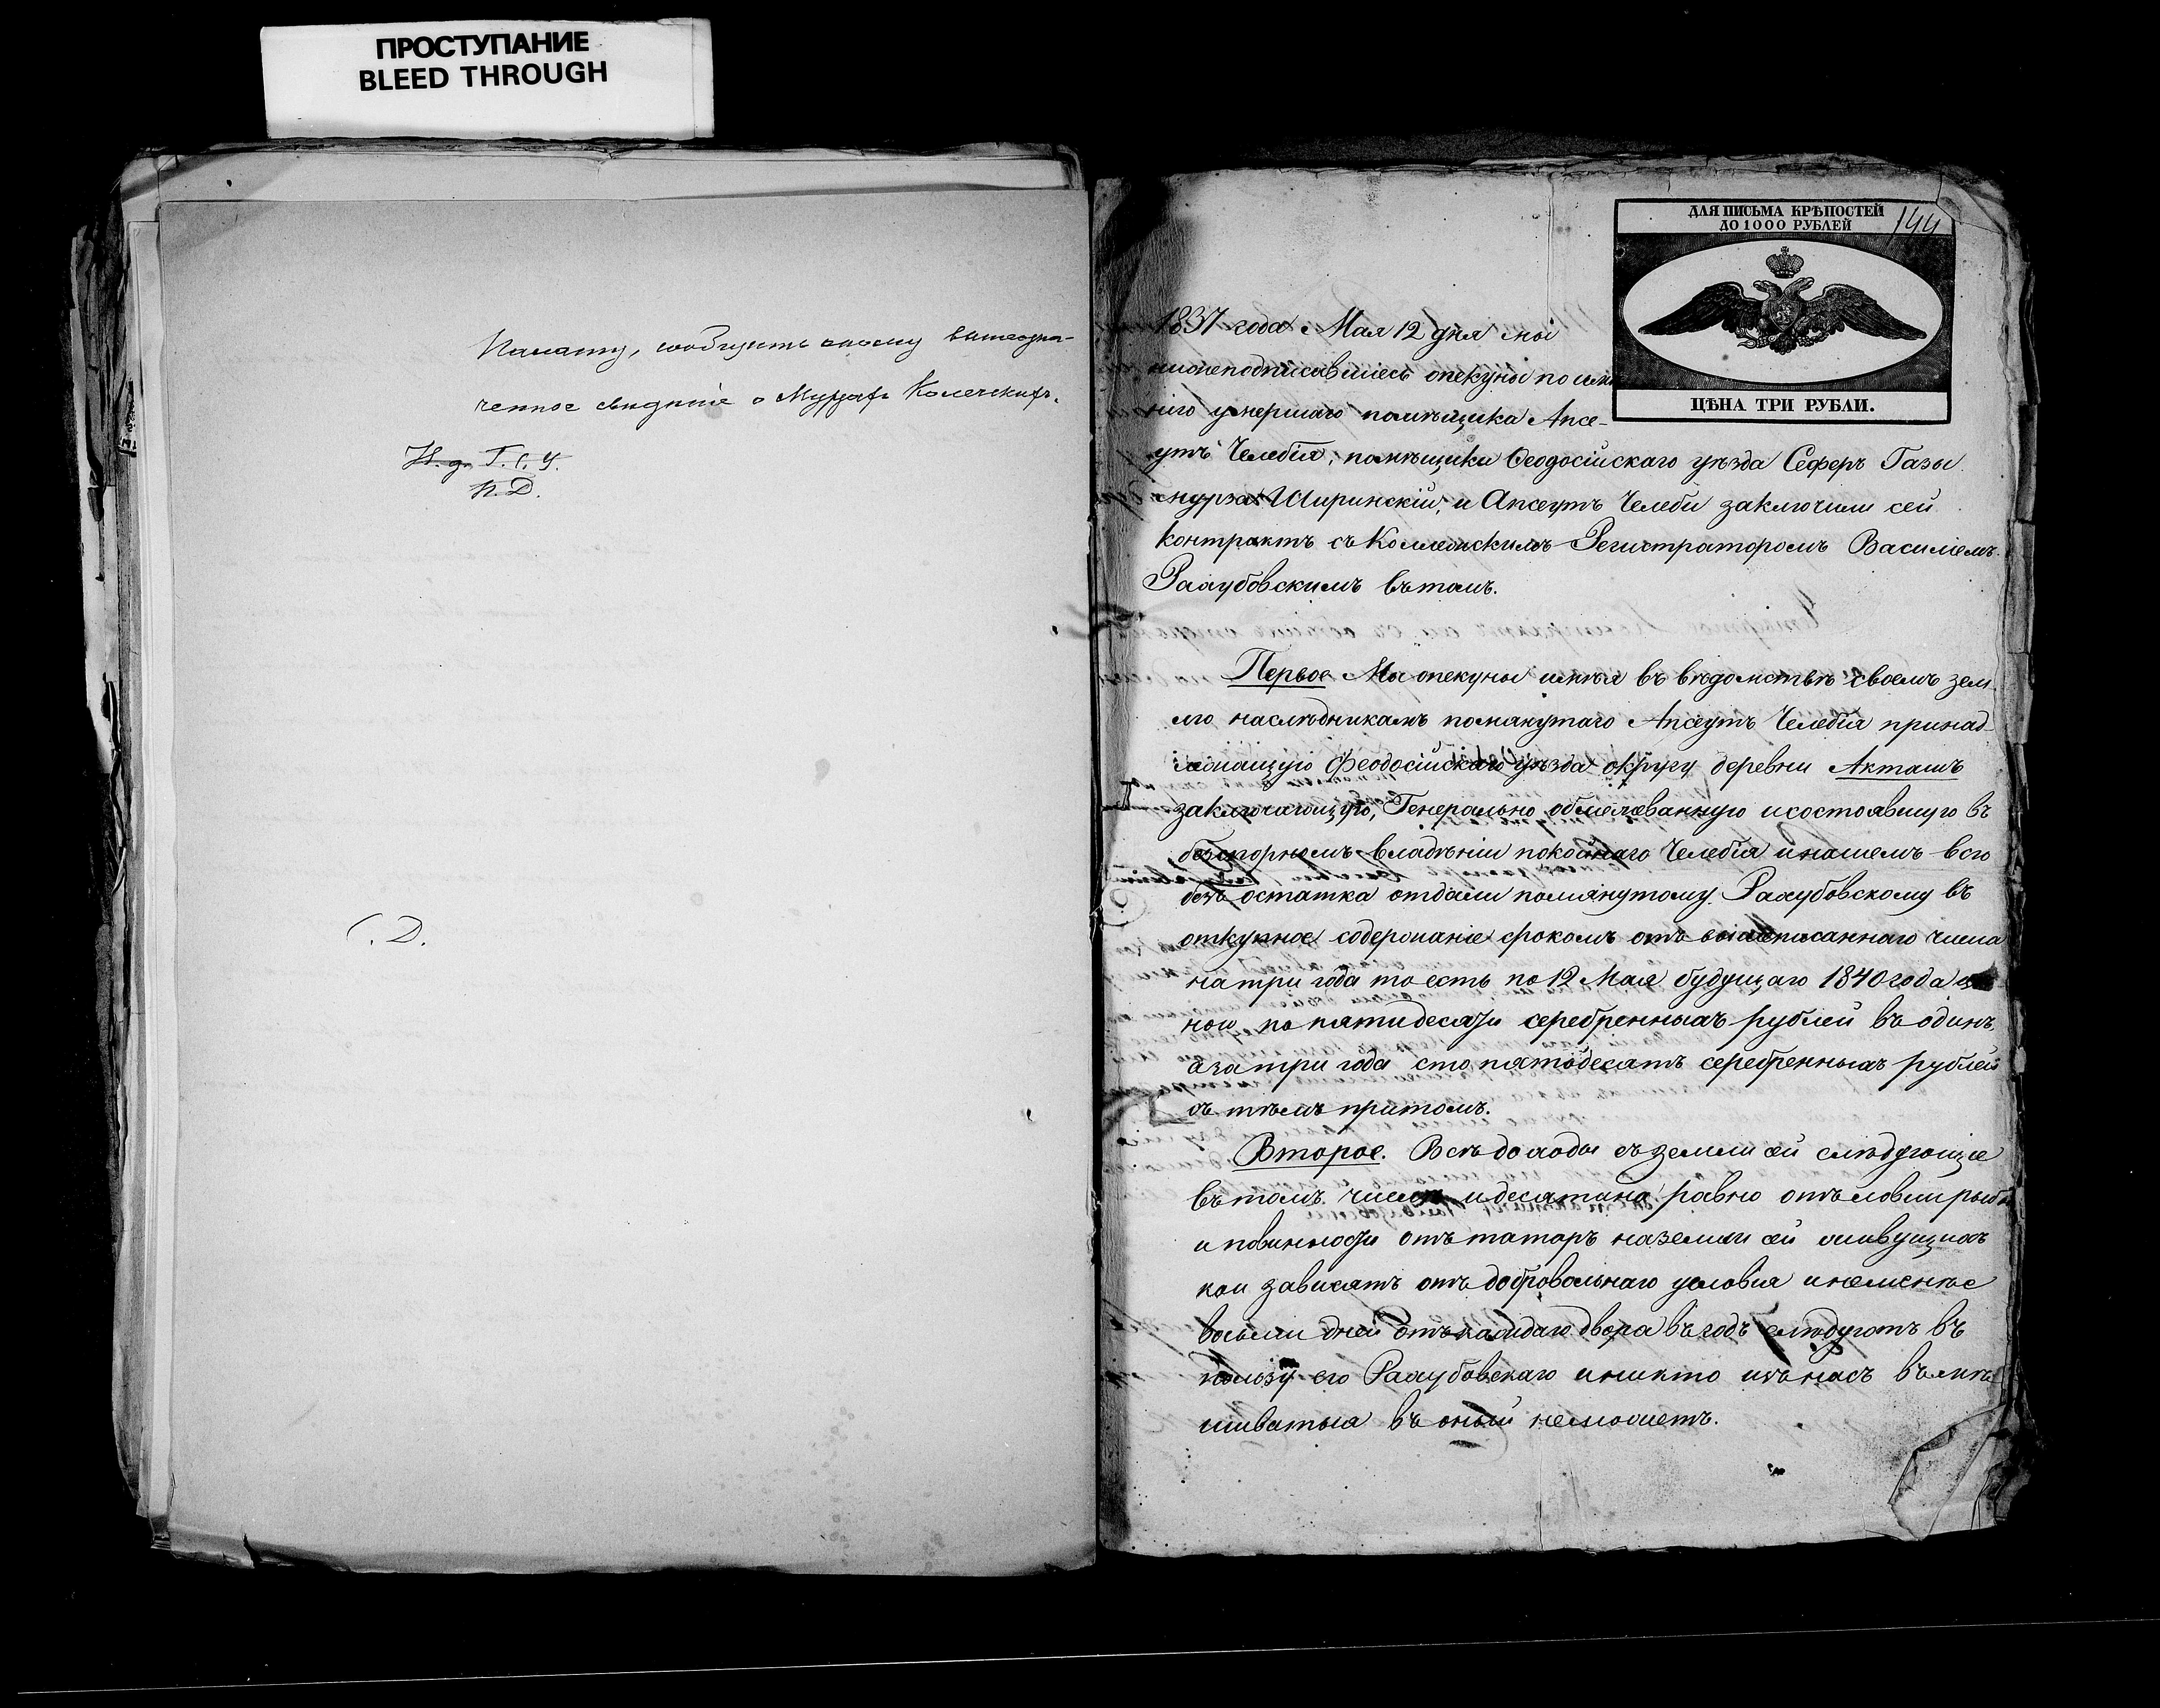 ПРОСТУПАНИЕ
BLEED THROUGH
Палату, сообщить оному вышеозна-
ченное свидѣніе о Мурзахъ
И. д. Г. С. У.
К. Д.
С. Д.
ДЛЯ ПИСЬМА КРѢПОСТЕЙ
ДО 1000 РУБЛЕЙ
144
ЦѢНА ТРИ РУБЛИ.
1837 года Мая 12 дня мы
нижеподписавшіесь опекуны по имѣ
нію умершаго помѣщика Апсе-
утъ Челебія, помѣщики Ѳеодосійскаго уѣзда Сеферъ Газы
мурза Ширинскій, и Апсеутъ Челеби заключили сей
контрактъ съ Коллежскимъ Регистраторомъ Василіемъ
Рахубовскимъ въ томъ.
Первое Мы опекуны имѣя въ вѣдомствѣ своемъ зем
лю наслѣдникамъ помянутаго Апсеутъ Челебія принад
лежащую Феодосійскаго уѣзда округу деревни Акташъ
заключающую, Генерально обмежеванную и состоявшую въ
безспорномъ владѣніи покойнаго Челебія и нашемъ всю
безъ остатка отдали помянутому Рахубовскому въ
откупное содержаніе срокомъ отъ вышеписаннаго числа
на три года то есть по 12 Мая будущаго 1840 года цѣ
ною по пятидесяти серебренныхъ рублей въ одинъ
а за три года сто пятьдесятъ серебренныхъ рублей
съ тѣмъ притомъ.
Второе. Всѣ доходы съ земли сей слѣдующіе
въ томъ числѣ и десятина равно отъ ловли рыбы
и повинности отъ татаръ на земли сей живущихъ
кои зависятъ отъ добровольнаго условія и неменѣе
восьми дней отъ каждаго двора въ годъ слѣдуютъ въ
пользу его Рахубовскаго и никто изъ насъ вмѣ
шиватьця въ оный неможетъ.